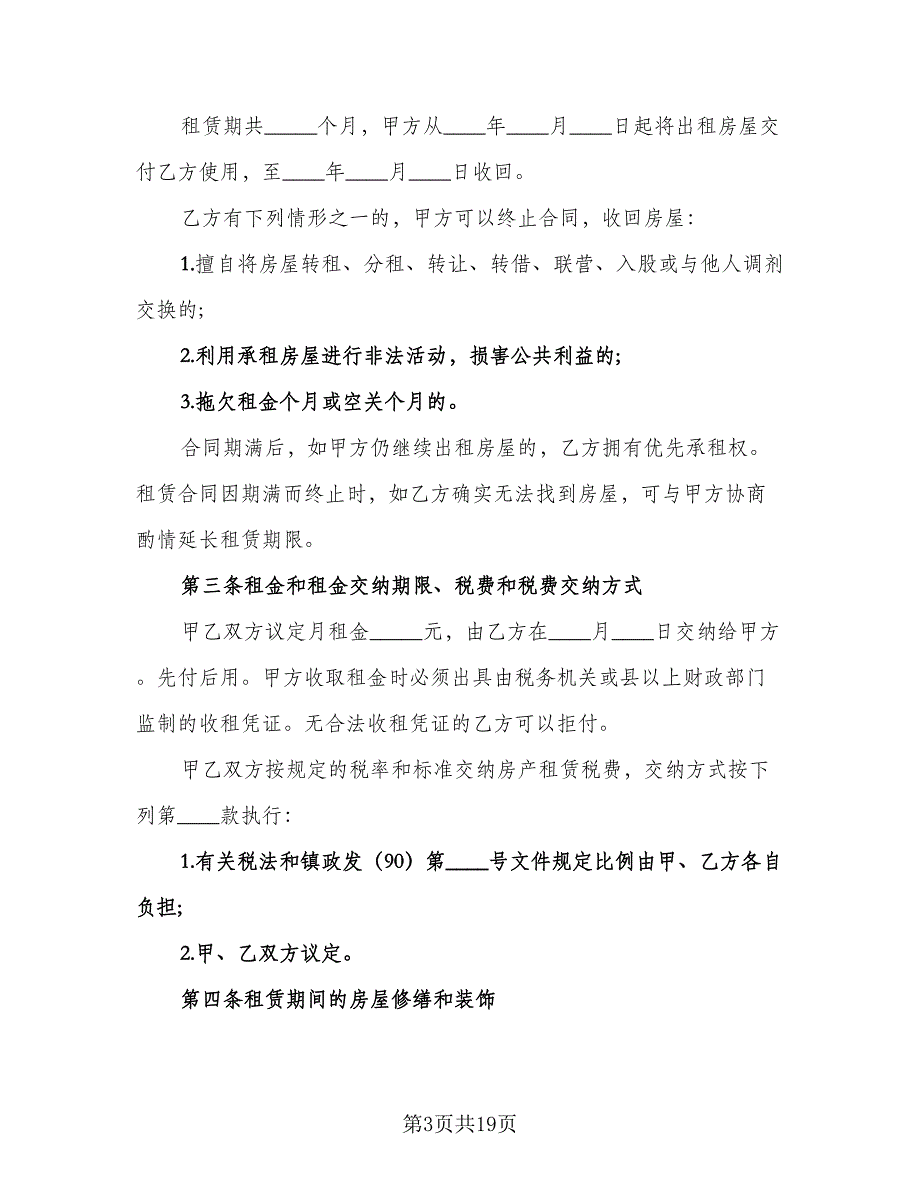 租赁期共_____个月，甲方从____年____月____日起将出租房屋交
付乙方使用，至____年____月____日收回。
乙方有下列情形之一的，甲方可以终止合同，收回房屋：
1.擅自将房屋转租、分租、转让、转借、联营、入股或与他人调剂
交换的;
2.利用承租房屋进行非法活动，损害公共利益的;
3.拖欠租金个月或空关个月的。
合同期满后，如甲方仍继续出租房屋的，乙方拥有优先承租权。
租赁合同因期满而终止时，如乙方确实无法找到房屋，可与甲方协商
酌情延长租赁期限。
第三条租金和租金交纳期限、税费和税费交纳方式
甲乙双方议定月租金_____元，由乙方在____月____日交纳给甲方
。先付后用。甲方收取租金时必须出具由税务机关或县以上财政部门
监制的收租凭证。无合法收租凭证的乙方可以拒付。
甲乙双方按规定的税率和标准交纳房产租赁税费，交纳方式按下
列第____款执行：
1.有关税法和镇政发（90）第____号文件规定比例由甲、乙方各自
负担;
2.甲、乙双方议定。
第四条租赁期间的房屋修缮和装饰
第3页共19页